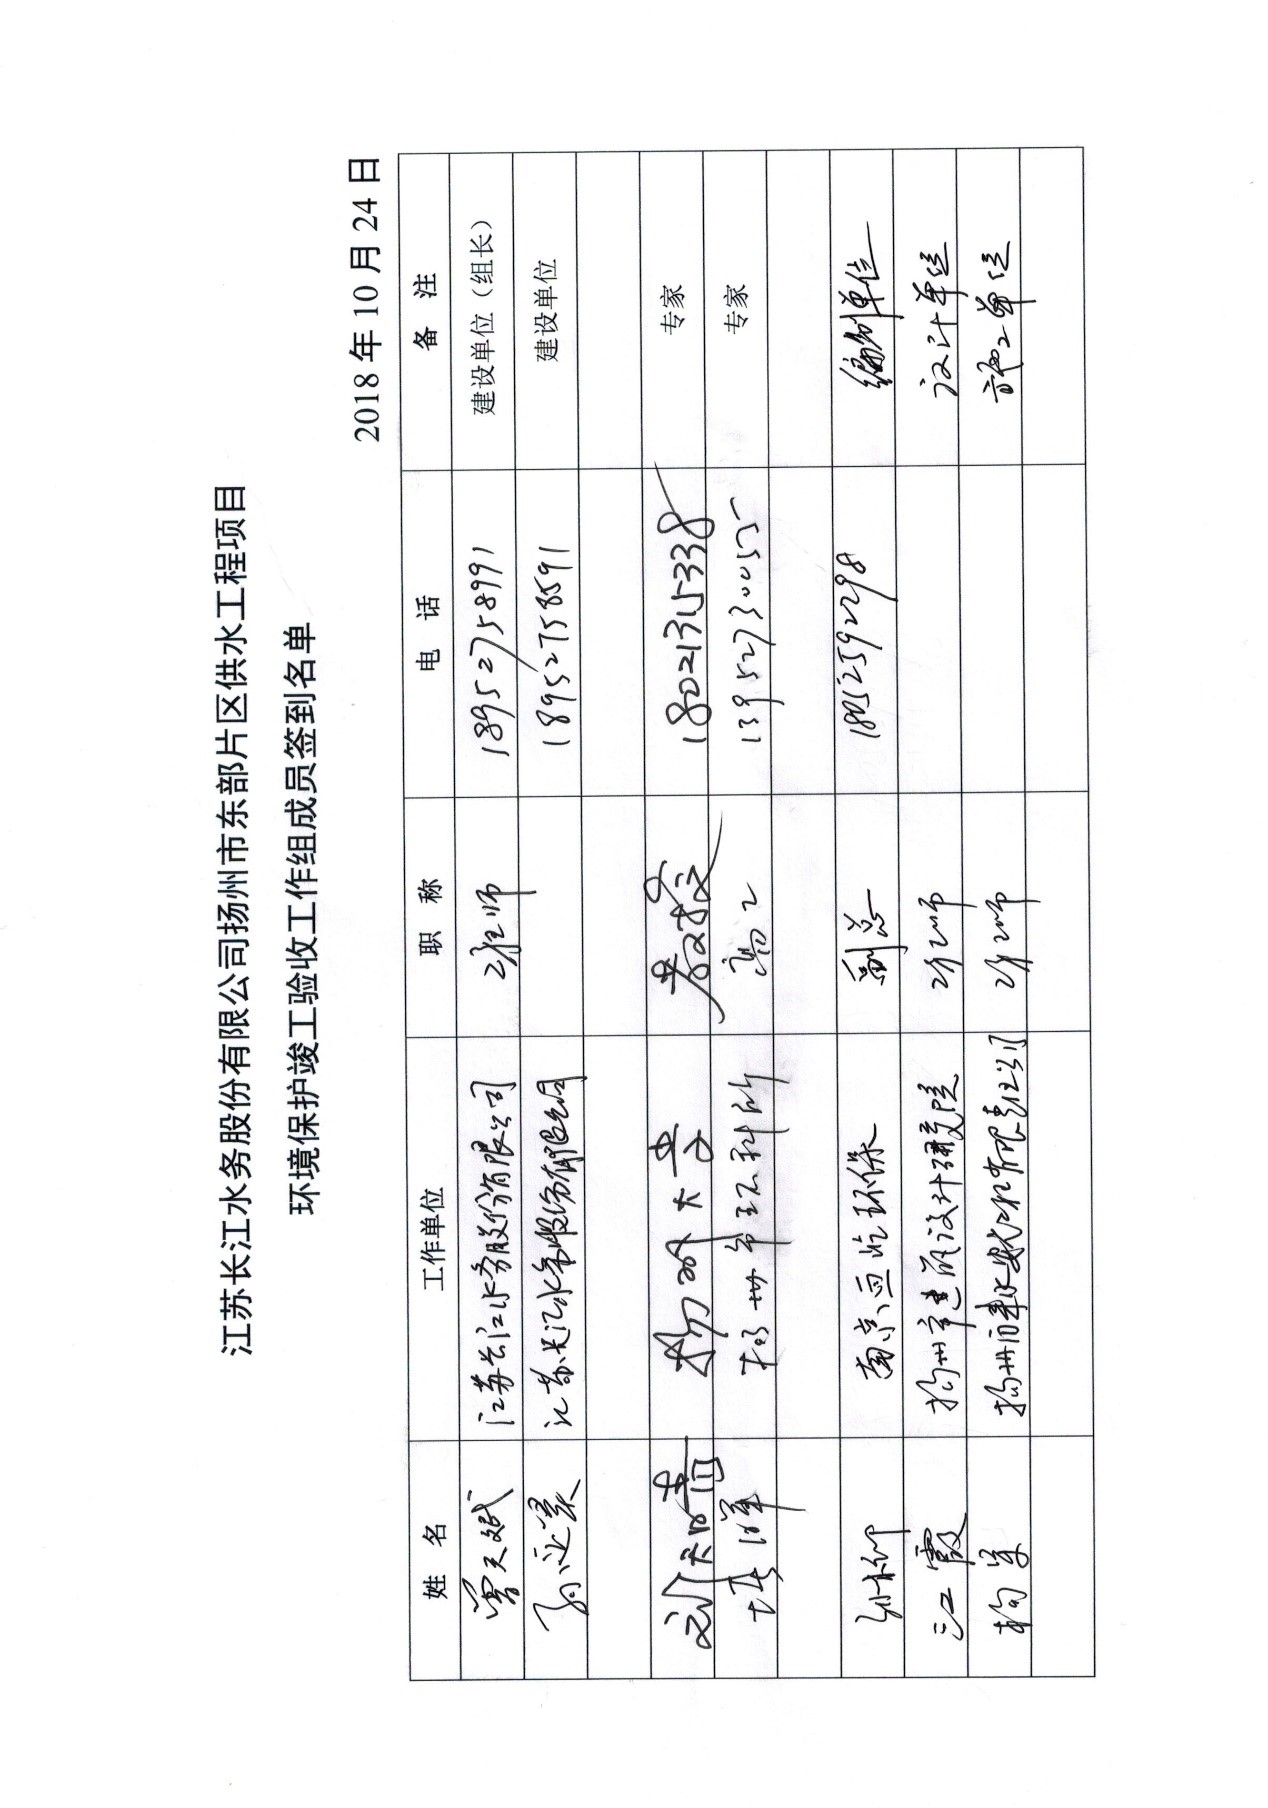 江苏长江水务股份有限公司扬州市东部片区供水工程项目
环境保护竣工验收工作组成员签到名单
2018年10月24日
姓 名 工作单位 职 称 电 话 备 注
曾天斌 江苏长江水务股份有限公司 工程师 18952758991 建设单位（组长）
江苏长江水务股份有限公司 18952758591 建设单位
扬州大学 教授 18021315338 专家
扬州市环科所 高工 13952730055 专家
南京 环保 副总 18052592298 编制单位
江霞 扬州市建筑设计研究院 工师 设计单位
杨军 扬州 工师 施工单位